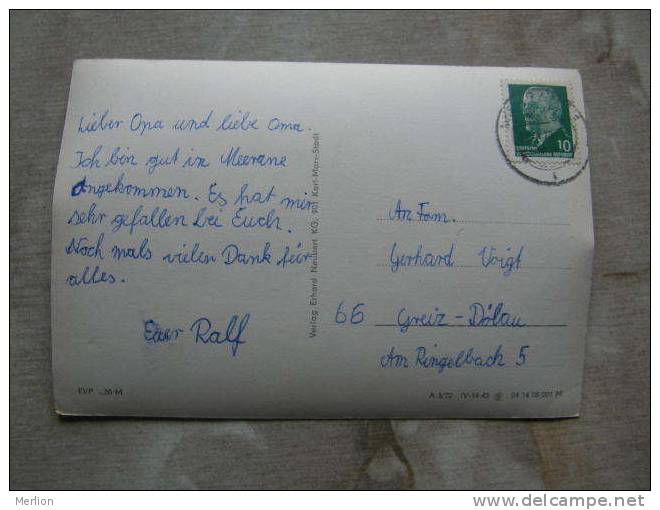 Lieber Opa und liebe Oma.
Ich bin gut in Meerane
angekommen. Es hat mir
sehr gefallen bei Euch.
Noch mals vielen Dank für
alles.
Euer Ralf
EVP -,20 M
Verlag Erhard Neubert KG, 901 Karl-Marx-Stadt
10
An Fam.
Gerhard Voigt
66 Greiz - Dölau
Am Ringelbach 5
A 3/72 IV-14-45
Merlion
www.delcampe.net